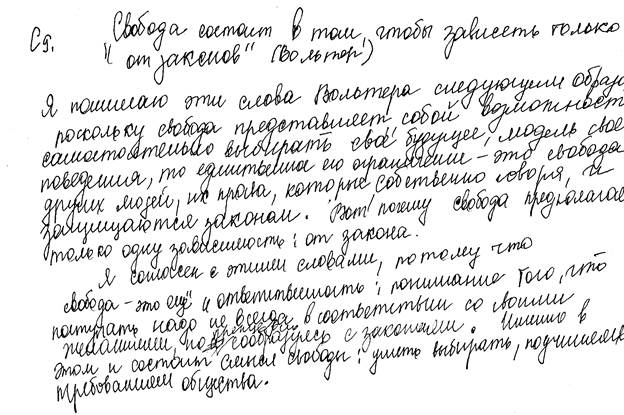 С9. Свобода состоит в том, чтобы зависеть только
от законов" (Вольтер)
Я понимаю эти слова Вольтера следующим образо
поскольку свобода представляет собой возможност
самостоятельно выбирать своё будущее, модель свое
поведения, то единственное его ограничение - это свобода
других людей, их права, которые собственно говоря, и
защищаются законом. Вот почему свобода предполагае
только одну зависимость: от закона.
Я согласен с этими словами, потому что
свобода - это ещё и ответственность: понимание того, что
поступать надо не всегда в соответствии со своими
желаниями, но прежде сообразуясь с законами. Именно в
этом и состоит смысл свободы: уметь выбирать, подчиняясь
требованиям общества.